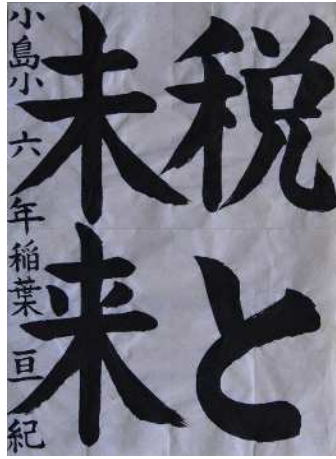 税と
未来
小島小 六年 稲葉 亘紀